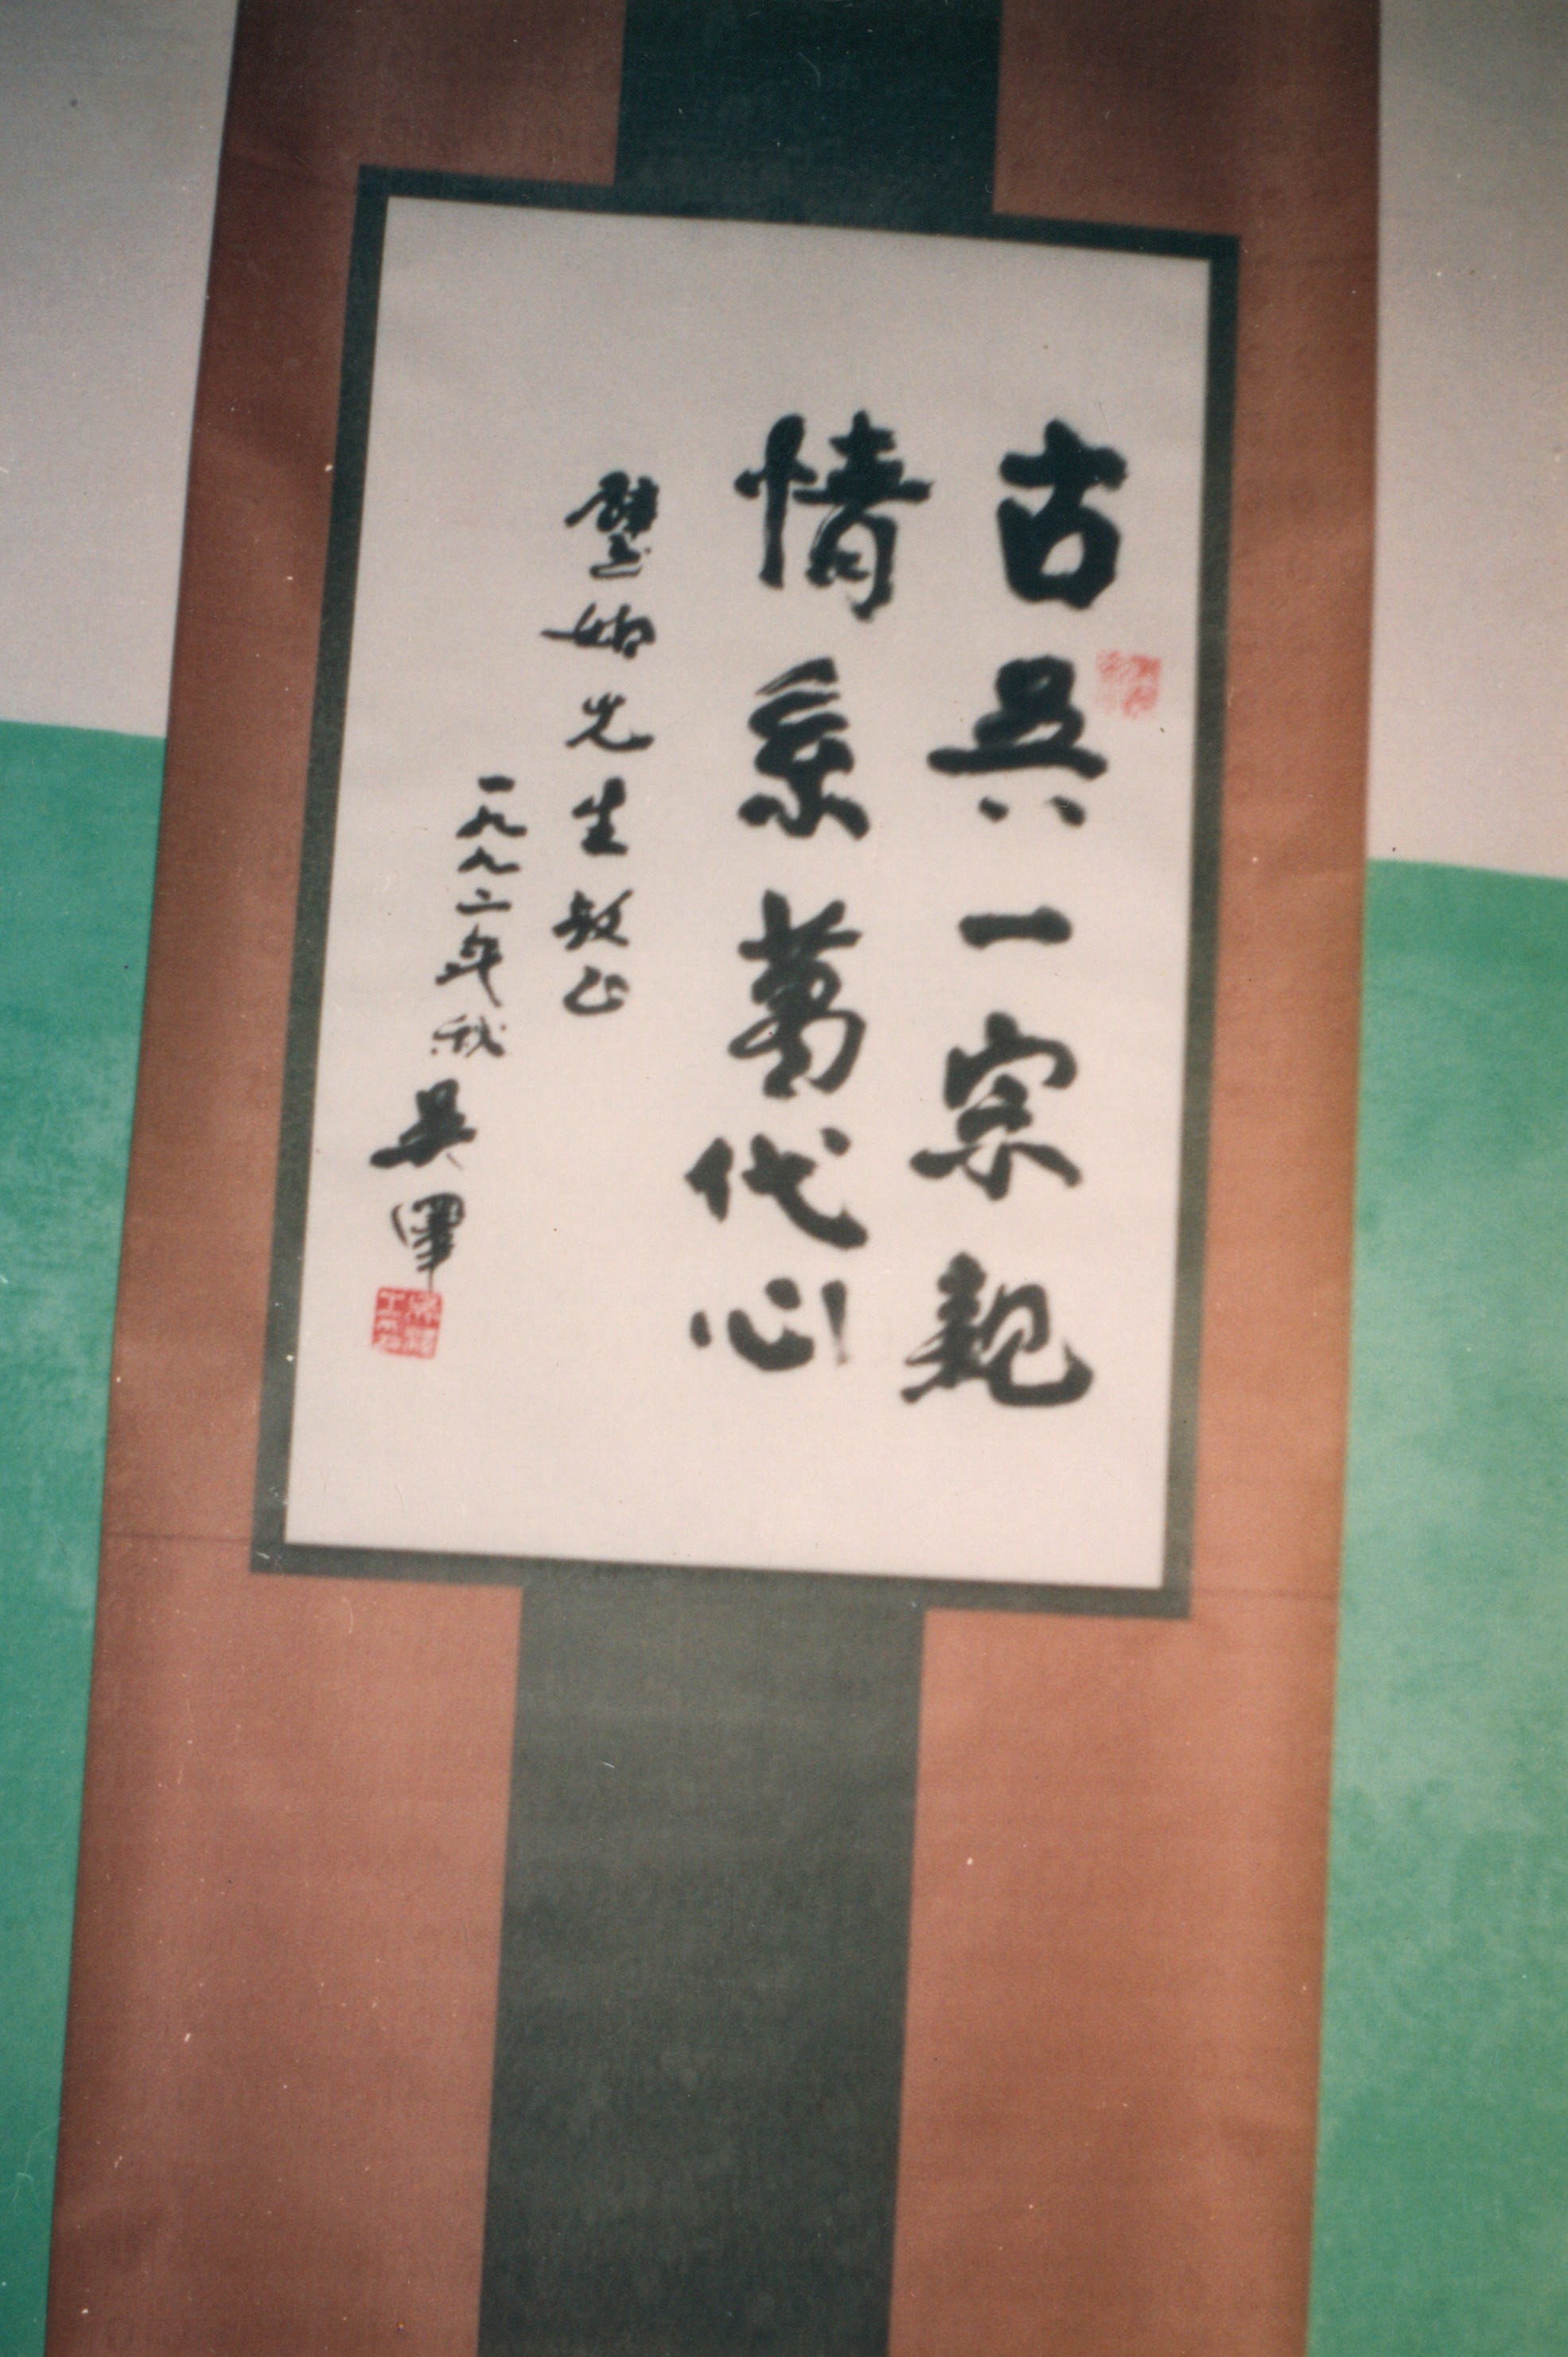 古吳一宗親
情系萬代心
璧先生教正
一九九二年秋 吳澤